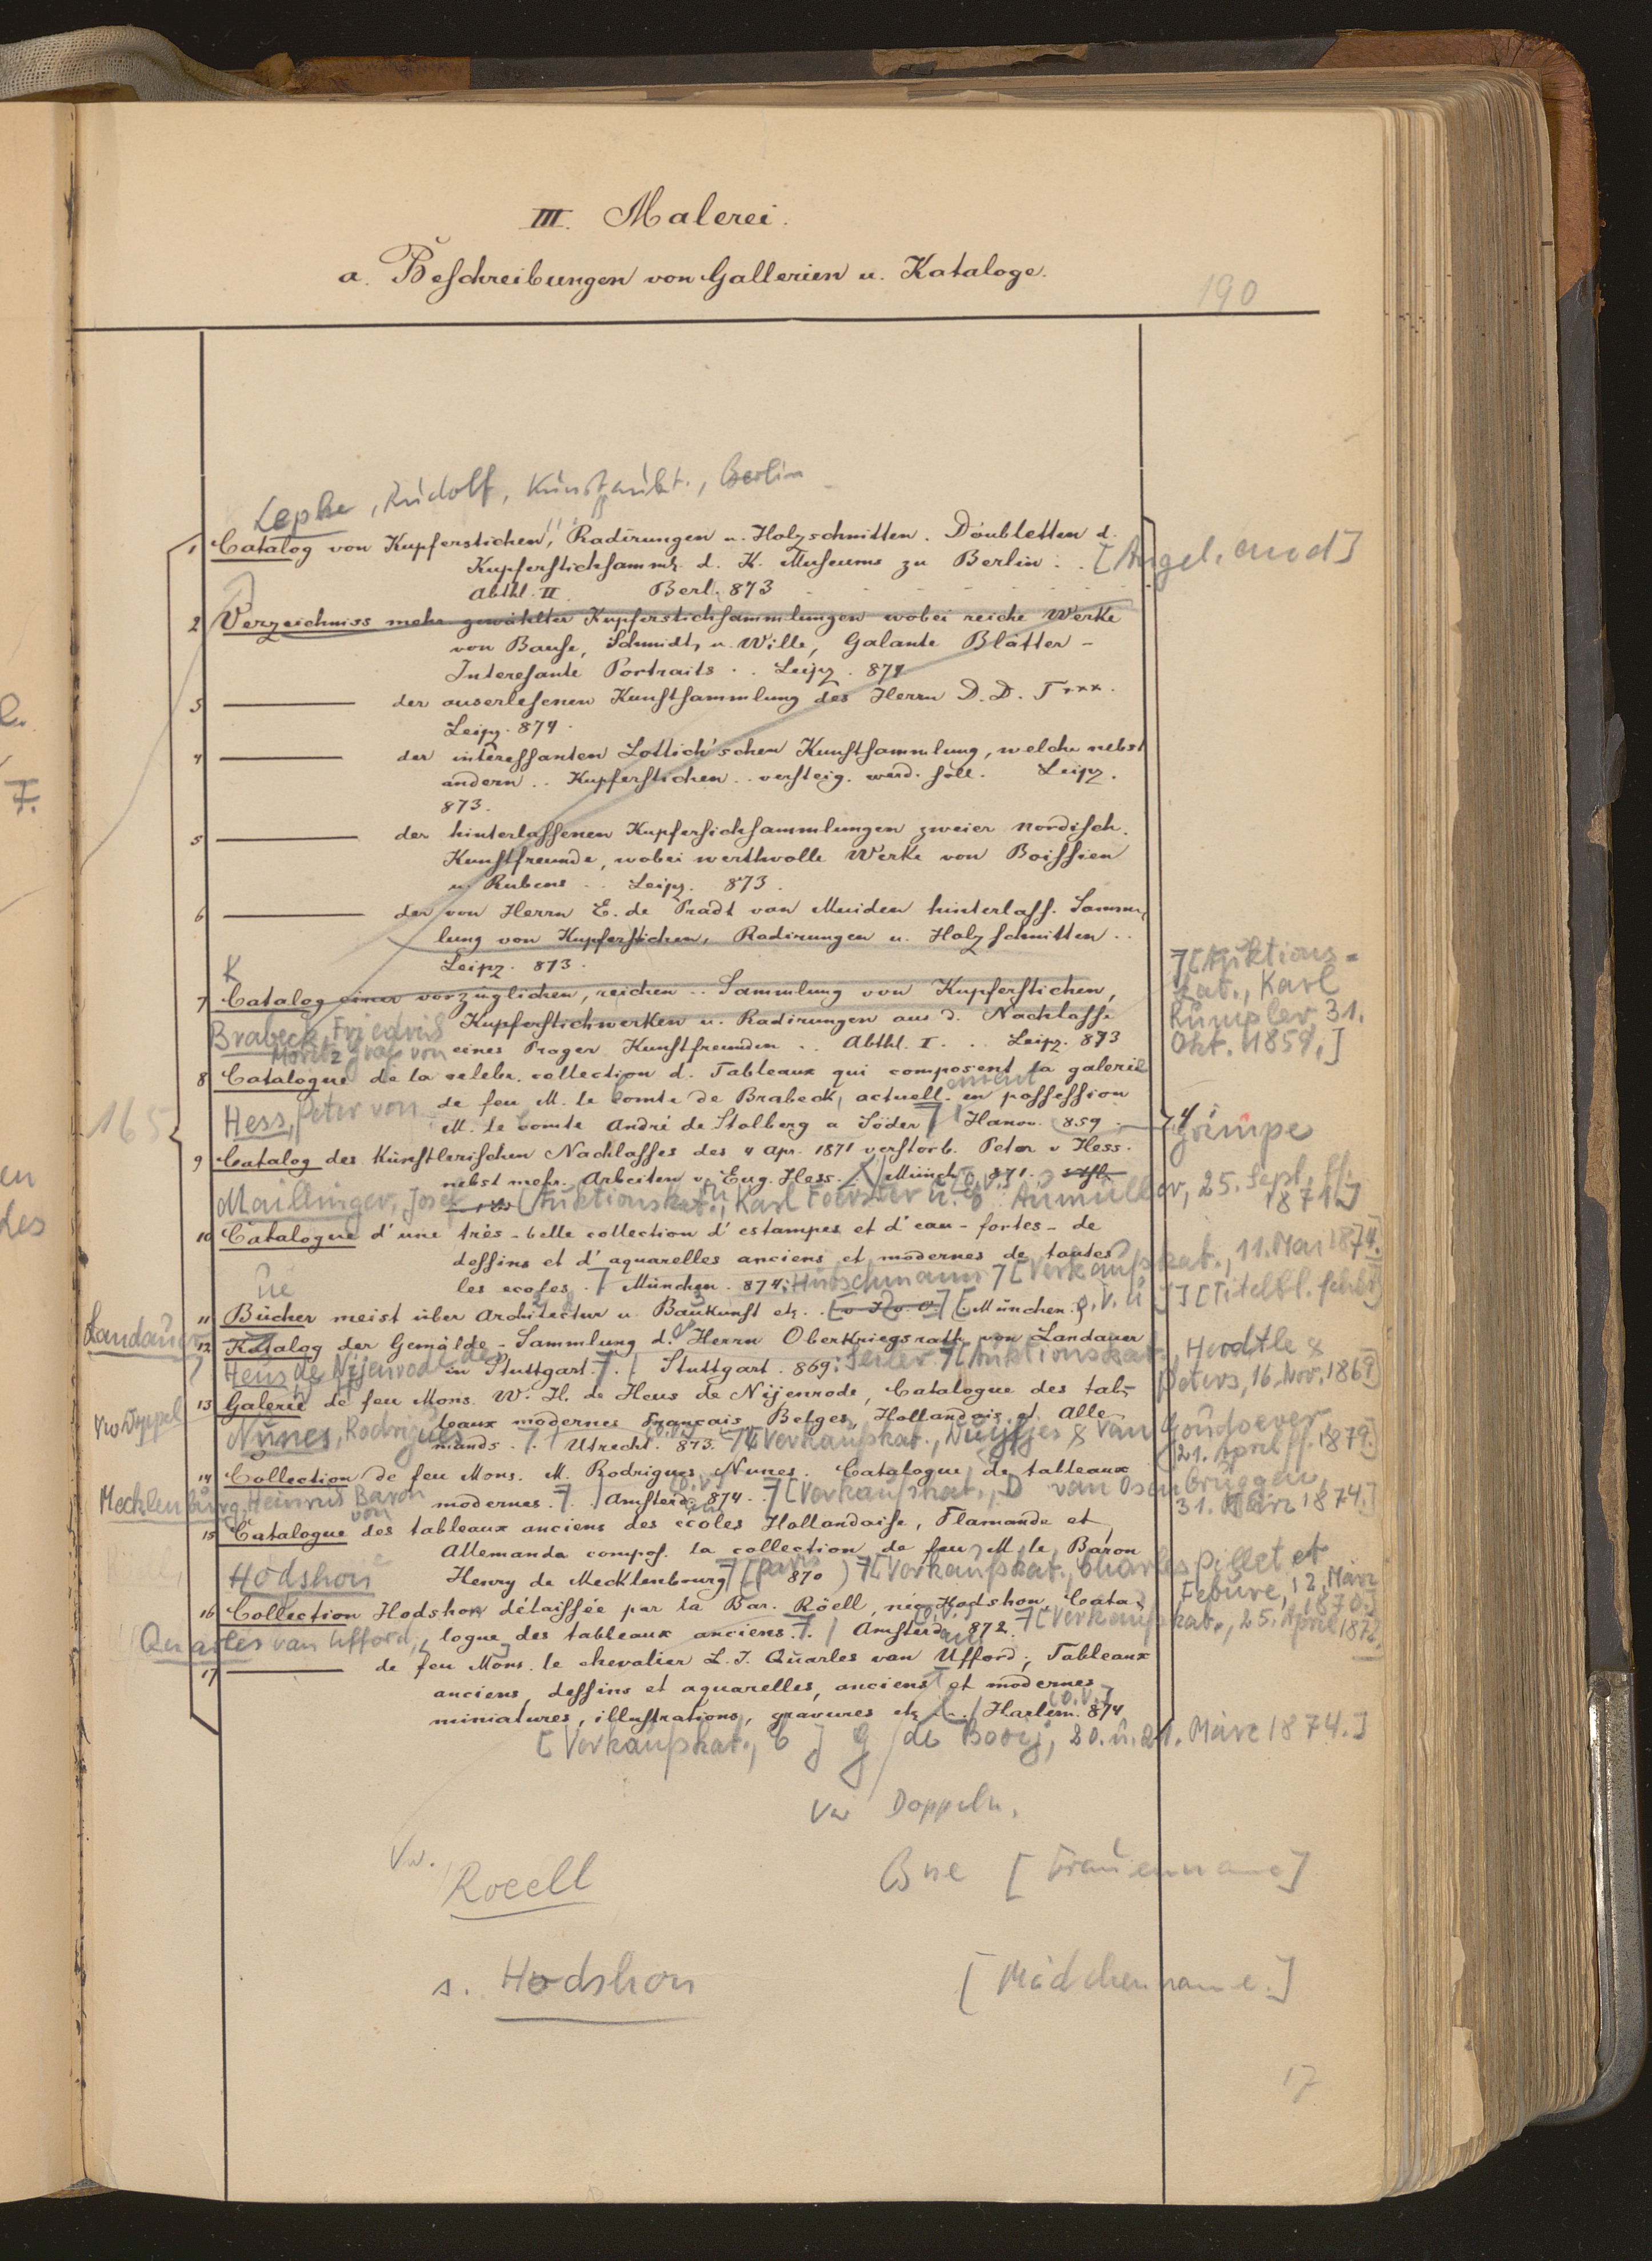 III. Malerei.
a. Beschreibungen von Gallerien u. Kataloge.
190
Lepke, Rudolf, Kunstaukt., Berlin
1 Catalog von Kupferstichen, Radirungen u. Holzschnitten. Doubletten d.
Kupferstichsamml. d. K. Museums zu Berlin . . [Angel. and]
Abthl. II. Berl. 873
2 Verzeichniss mehr gewählter Kupferstichsammlungen wobei reiche Werke
von Bause, Schmidt, u. Wille, Galante Blätter -
Interesante Portraits . . Leipz. 874
3 ——— der auserlesenen Kunstsammlung des Herrn D. D. T***.
Leipz. 874.
4 ——— der interessanten Lottich'schen Kunstsammlung, welche nebst
andern .. Kupferstichen .. versteig. werd. soll. Leipz.
873.
5 ——— der hinterlassenen Kupfersichsammlungen zweier nordisch.
Kunstfreunde, wobei werthvolle Werke von Boissien
u. Rubens .. Leipz. 873.
6 ——— der von Herrn E. de Pradt van Muiden hinterlass. Samm-
lung von Kupferstichen, Radirungen u. Holzschnitten ..
Leipz. 873.
K
7 Catalog einer vorzüglichen, reichen .. Sammlung von Kupferstichen,
Kupferstichwerken u. Radirungen aus d. Nachlasse
eines Prager Kunstfreunden .. Abthl. I. .. Leipz. 873
Brabeck, Friedrich
Moritz Graf von
7[Auktions=
kat., Karl
Rümpler, 31.
Okt. 1859.]
8 Catalogue de la celebr. collection d. Tableaux qui composent la galerie
de feu M. le Comte de Brabeck, actuell. en possession
ement
M. le Comte André de Stolberg a Söder 7 | Hanov. 859
165
Hess, Peter von
9 Catalog des Künstlerischen Nachlasses des 4 Apr. 1871 verstorb. Peter v Hess.
nebst mehr. Arbeiten v. Eug. Hess. Münch. 871.
[Auktionskat., Karl Foerster u. Aumüller, 25. Sept. ff.
1871.]
Maillinger, Josef
10 Catalogue d'une très-belle collection d'estampes et d'eau-fortes - de
dessins et d'aquarelles anciens et modernes de toutes
les ecoles. 7 München. 874: Hirschmann 7 [Verkaufskat., 11. Mai 1874.]
11 Bücher meist über Architectur u. Baukunst etc. . [München. o. V. u. J] [Titelbl. fehlt]
Landauer
12 Katalog der Gemälde-Sammlung d. Herrn Oberkriegsrath von Landauer
in Stuttgart. 7. | Stuttgart. 869: Seiler. 7[Auktionskat., Herdtle &
Peters, 16. Nov. 1869]
Heus de Nijenrode
13 Galerie de feu Mons. W. H. de Heus de Nijenrode, Catalogue des tab-
leaux modernes Français, Belges, Hollandais et Alle-
mands. 7. | Utrecht. 873. 7[Verkaufskat.,
Nunes, Rodrigues
14 Collection de feu Mons. M. Rodrigues Nunes. Catalogue de tableaux
modernes. 7. | Amsterd. 874. 7[Verkaufskat., D van Osenbrüggen,
31. März 1874.]
Mecklenburg, Heinrich Baron
von
15 Catalogue des tableaux anciens des écoles Hollandaise, Flamande et
Allemande compos. la collection de feu M. le Baron
Henry de Mecklenbourg 7 [Paris 870) 7[Verkaufskat., Charles Pillet et
Febure, 12. März
1870.]
Hodshon
16 Collection Hodshon délaissée par la Bar. Röell, née Hodshon, Cata-
logue des tableaux anciens. 7. | Amsterd. 872. 7[Verkaufskat., 25. April 1872.
Quarles van Ufford,
17 ——— de feu Mons. le chevalier L. J. Quarles van Ufford, Tableaux
anciens, dessins et aquarelles, anciens et modernes
miniatures, illustrations, gravures etc. | Harlem. 874
[Verkaufskat., C J G de Booij, 20. u. 21. März 1874.]
Vw Doppeln.
Vw.
Roeell Bne [Frauenname]
s. Hodshon [Mädchenname.]
17